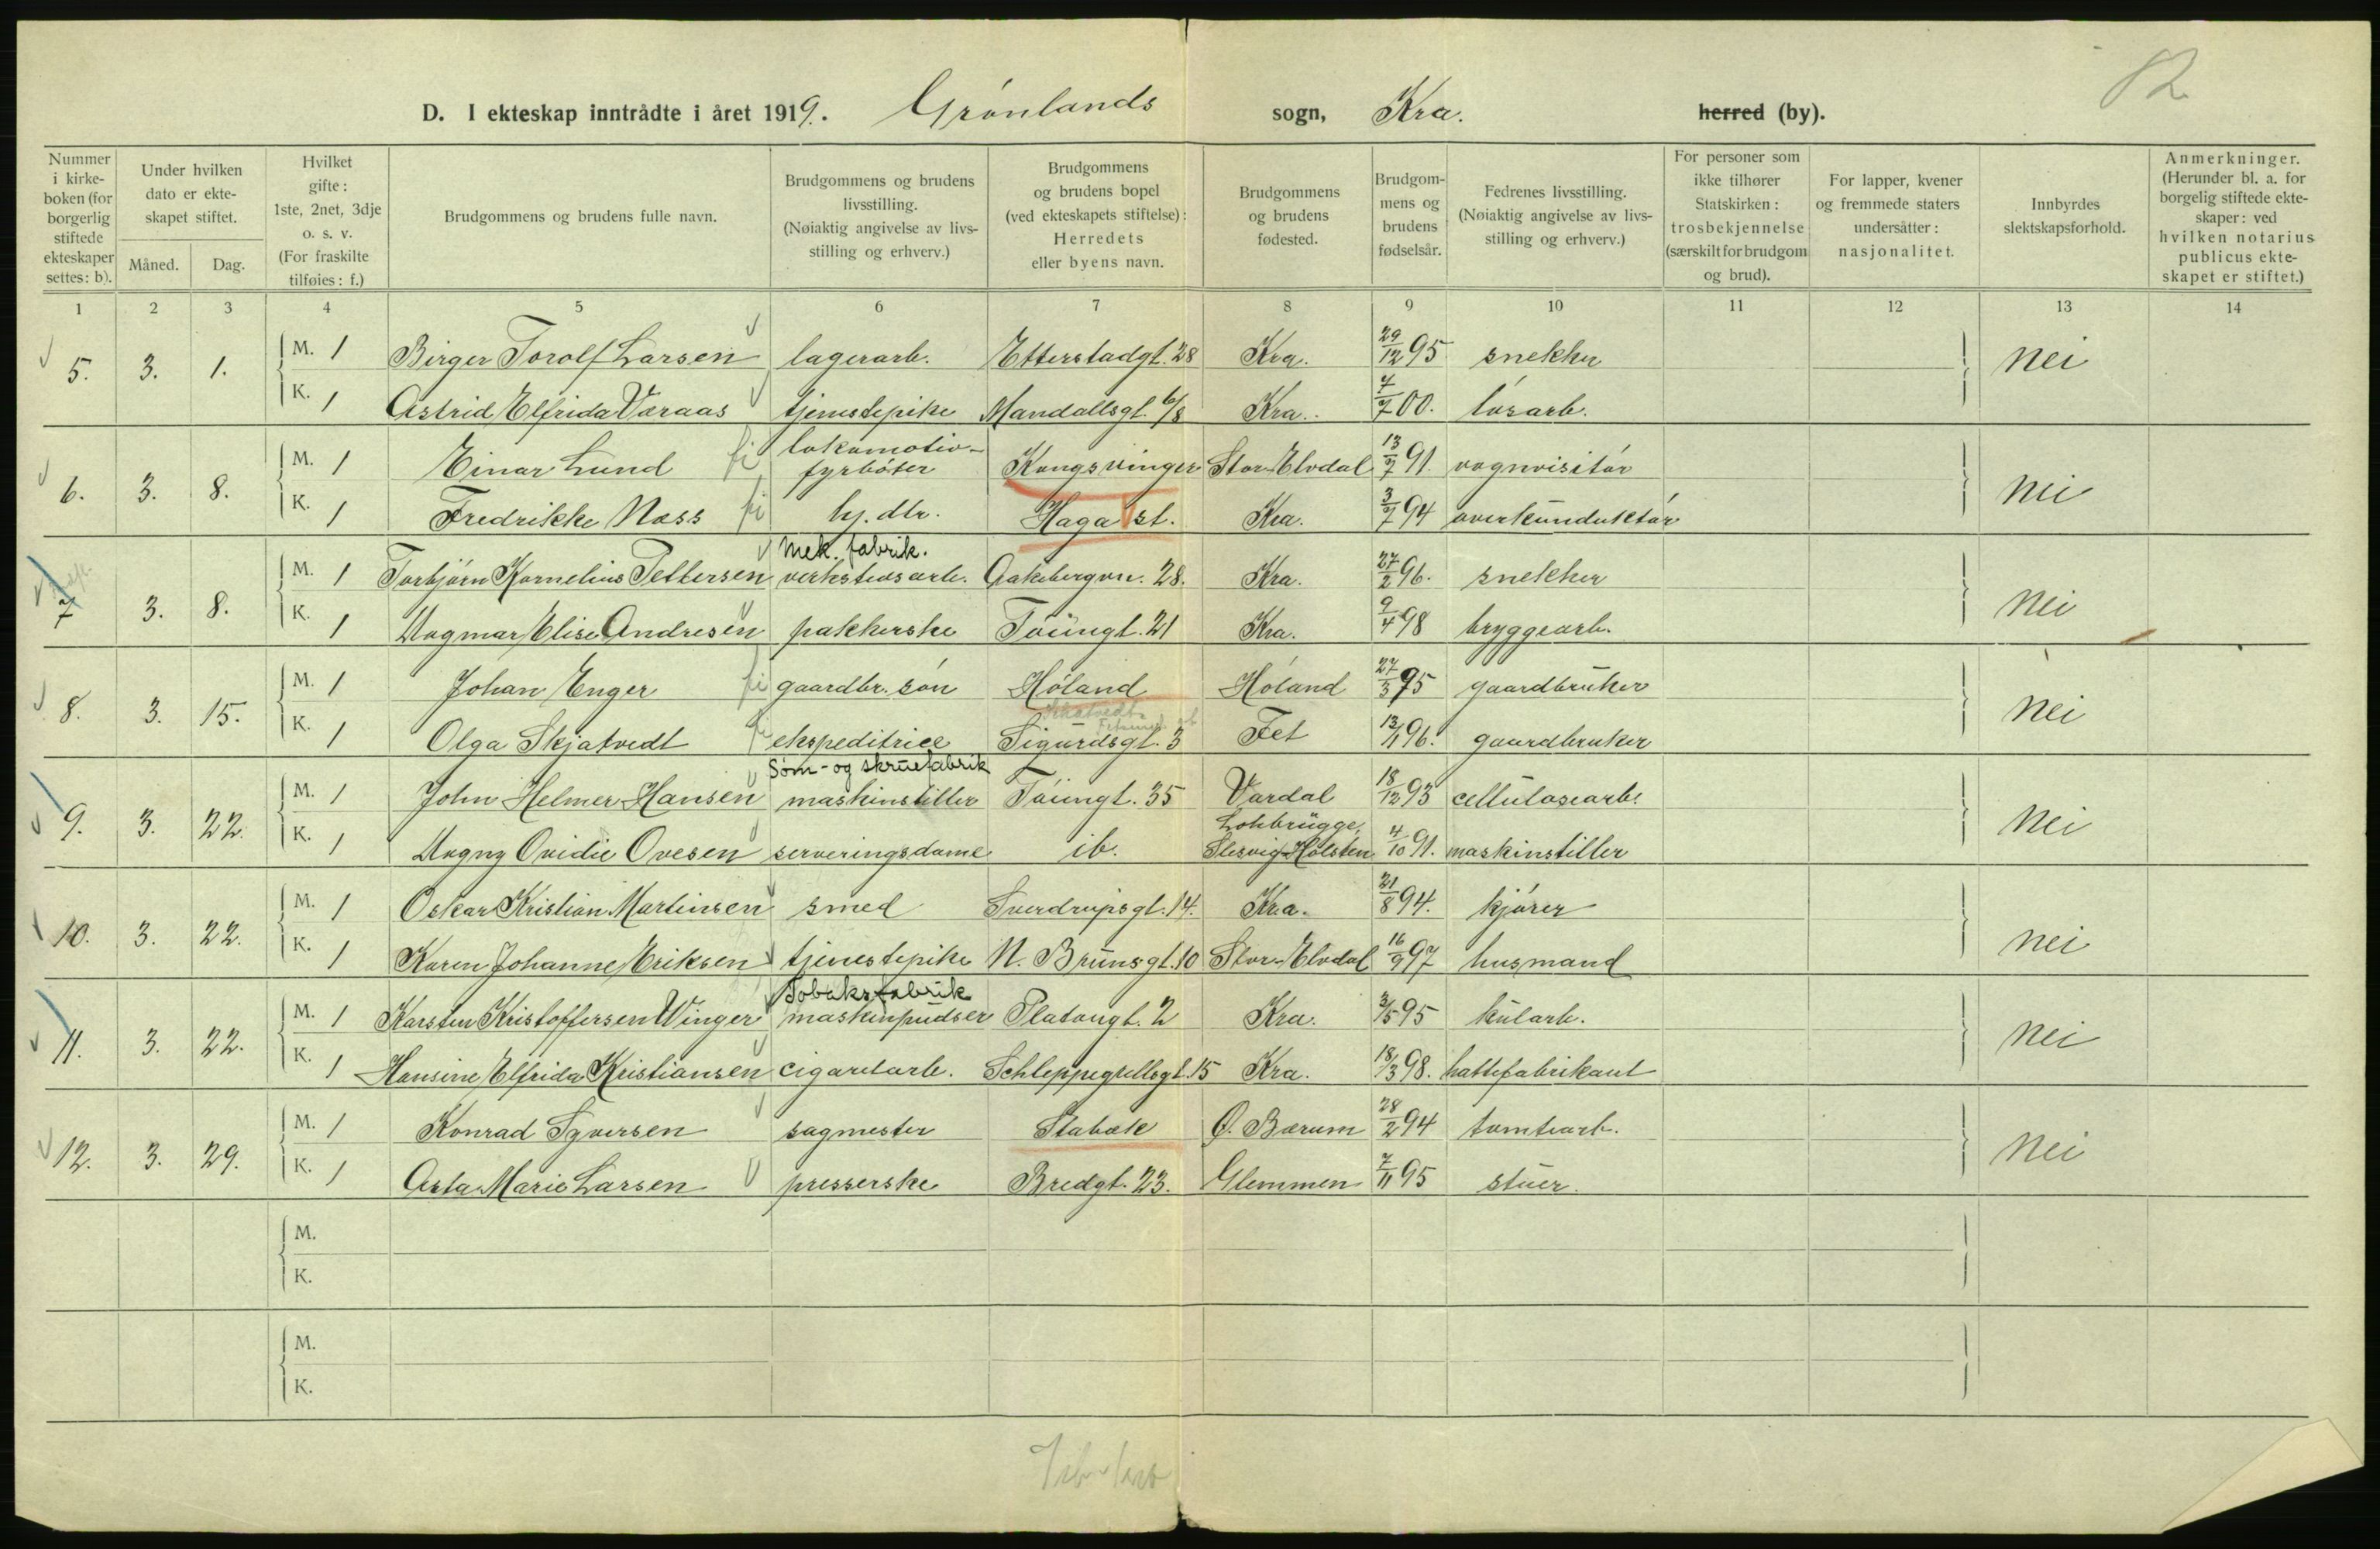 82
D. I ekteskap inntrådte i året 1919. Grønlands sogn, Kra. herred (by).
Nummer i kirkeboken (for borgerlig stiftede ekteskaper settes: b).
Under hvilken dato er ekteskapet stiftet.
Måned. Dag.
Hvilket gifte: 1ste, 2net, 3dje o. s. v. (For fraskilte tilføies: f.)
Brudgommens og brudens fulle navn.
Brudgommens og brudens livsstilling. (Nøiaktig angivelse av livsstilling og erhverv.)
Brudgommens og brudens bopel (ved ekteskapets stiftelse): Herredets eller byens navn.
Brudgommens og brudens fødested.
Brudgommens og brudens fødselsår.
Fedrenes livsstilling. (Nøiaktig angivelse av livsstilling og erhverv.)
For personer som ikke tilhører Statskirken: trosbekjennelse (særskilt for brudgom og brud).
For lapper, kvener og fremmede staters undersåtter: nasjonalitet.
Innbyrdes slektskapsforhold.
Anmerkninger. (Herunder bl. a. for borgelig stiftede ekteskaper: ved hvilken notarius publicus ekteskapet er stiftet.)
1 2 3 4 5 6 7 8 9 10 11 12 13 14
5. 3. 1. M. 1 Birger Torolf Larsen lagerarb. Etterstadgt. 28 Kra. 29/12 95 snekker nei
K. 1 Astrid Elfrida Varaas tjenestepike Mandallsgt. 6/8 Kra. 7/7 00. løsarb.
6. 3. 8. M. 1 Einar Lund lokomotiv-fyrbøter Kongsvinger Stor-Elvdal 13/7 91. vognvisitør nei
K. 1 Fredrikke Næss hj. dtr. Haga st. Kra. 3/7 94 overkonduktør
7 3. 8. M. 1 Torbjørn Kornelius Pettersen mek. fabrik. verkstedsarb. Aakebergvn. 28. Kra. 27/2 96. snekker nei
K. 1 Dagmar Elise Andresen pakkerske Tøiengt. 21 Kra. 9/4 98 bryggearb.
8. 3. 15. M. 1 Johan Enger gaardbr. søn Høland Høland 27/3 95 gaardbruker nei
K. 1 Olga Skjatvedt ekspeditrice Sigurdsgt. 3 Fet 13/11 96. gaardbruker
9. 3. 22. M. 1 John Helmer Hansen Søm- og skruefabrik maskinstiller Tøiengt. 35 Vardal 18/12 93 cellulosearb. nei
K. 1 Dagny Ovidie Ovesen serveringsdame ib. Lohbrügge, Slesvig-Holsten 4/10 91. maskinstiller
10. 3. 22. M. 1 Oskar Kristian Martinsen smed Sverdrupsgt. 14. Kra. 21/8 94. kjører nei
K. 1 Karen Johanne Eriksen tjenestepike N. Brunsgt. 10 Stor-Elvdal 16/9 97 husmand
11. 3. 22. M. 1 Karsten Kristoffersen Winger Tobaksfabrik maskinpudser Platougt. 2 Kra. 3/5 95 kularb. nei
K. 1 Hansine Elfrida Kristiansen cigaretarb. Schleppegrellsgt. 15 Kra. 18/3 98. hattefabrikant
12. 3. 29. M. 1 Konrad Syversen sagmester Stabæk Ø. Bærum 28/2 94 tomtearb. nei
K. 1 Asta Marie Larsen presserske Bredgt. 23. Glemmen 7/11 95 stuer.
M.
K.
M.
K.